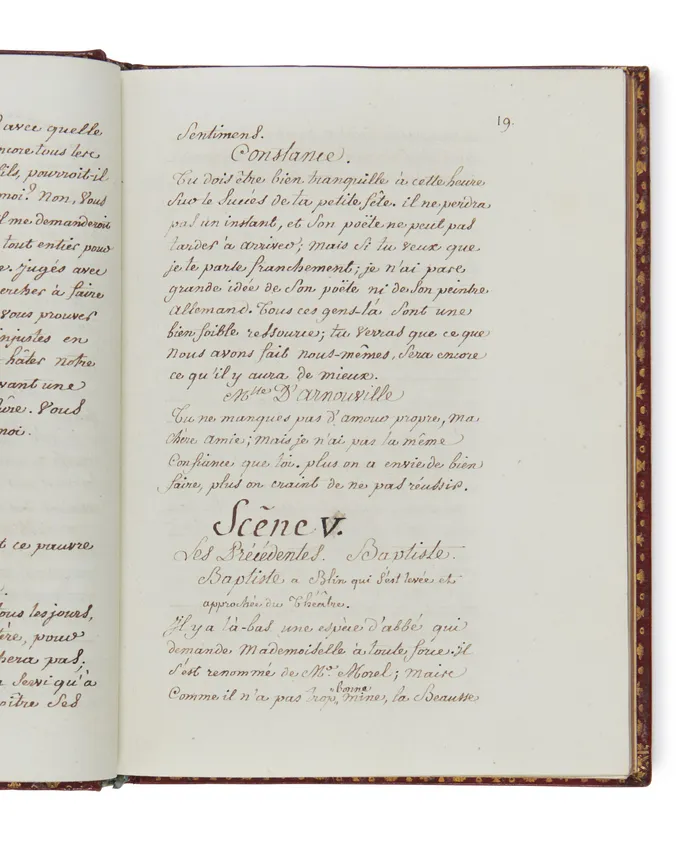 avec quelle
encore tous les
fils, pourroit-il
moi? Non, Vous
il me demanderoit
tout entier pour
e. jugés avec
chercher à faire
vous prouver
injustes en
-hâter notre
avant une
ture. Vous
moi.
t ce pauvre
tous les jours,
ère, pour
chera pas;
servi qu'à
oître Ses
19.
Sentimens.
Constance.
Tu dois être bien tranquille à cette heure
Sur le Succès de ta petite fête. il ne perdra
pas un instant, et Son poëte ne peut pas
tarder à arriver; mais Si tu veux que
je te parle franchement; je n'ai pas
grande idée de Son poëte ni de Son peintre
allemand. Tous ces gens-là Sont une
bien foible ressource; tu verras que ce que
Nous avons fait nous-mêmes, Sera encore
ce qu'il y aura de mieux.
Mlle D'arnouville
Tu ne manques pas d'amour propre, ma
chère amie; mais je n'ai pas la même
Confiance que toi. plus on a envie de bien
faire, plus on craint de ne pas réussir.
Scène V.
Les Précédentes. Baptiste.
Baptiste a Blin qui S'est levée et
approchée du Théâtre.
Il y a là-bas une espèce d'abbé qui
demande Mademoiselle à toute force. il
S'est renommé de Mr. Morel; mais
Comme il n'a pas trop bonne mine, la Beausse